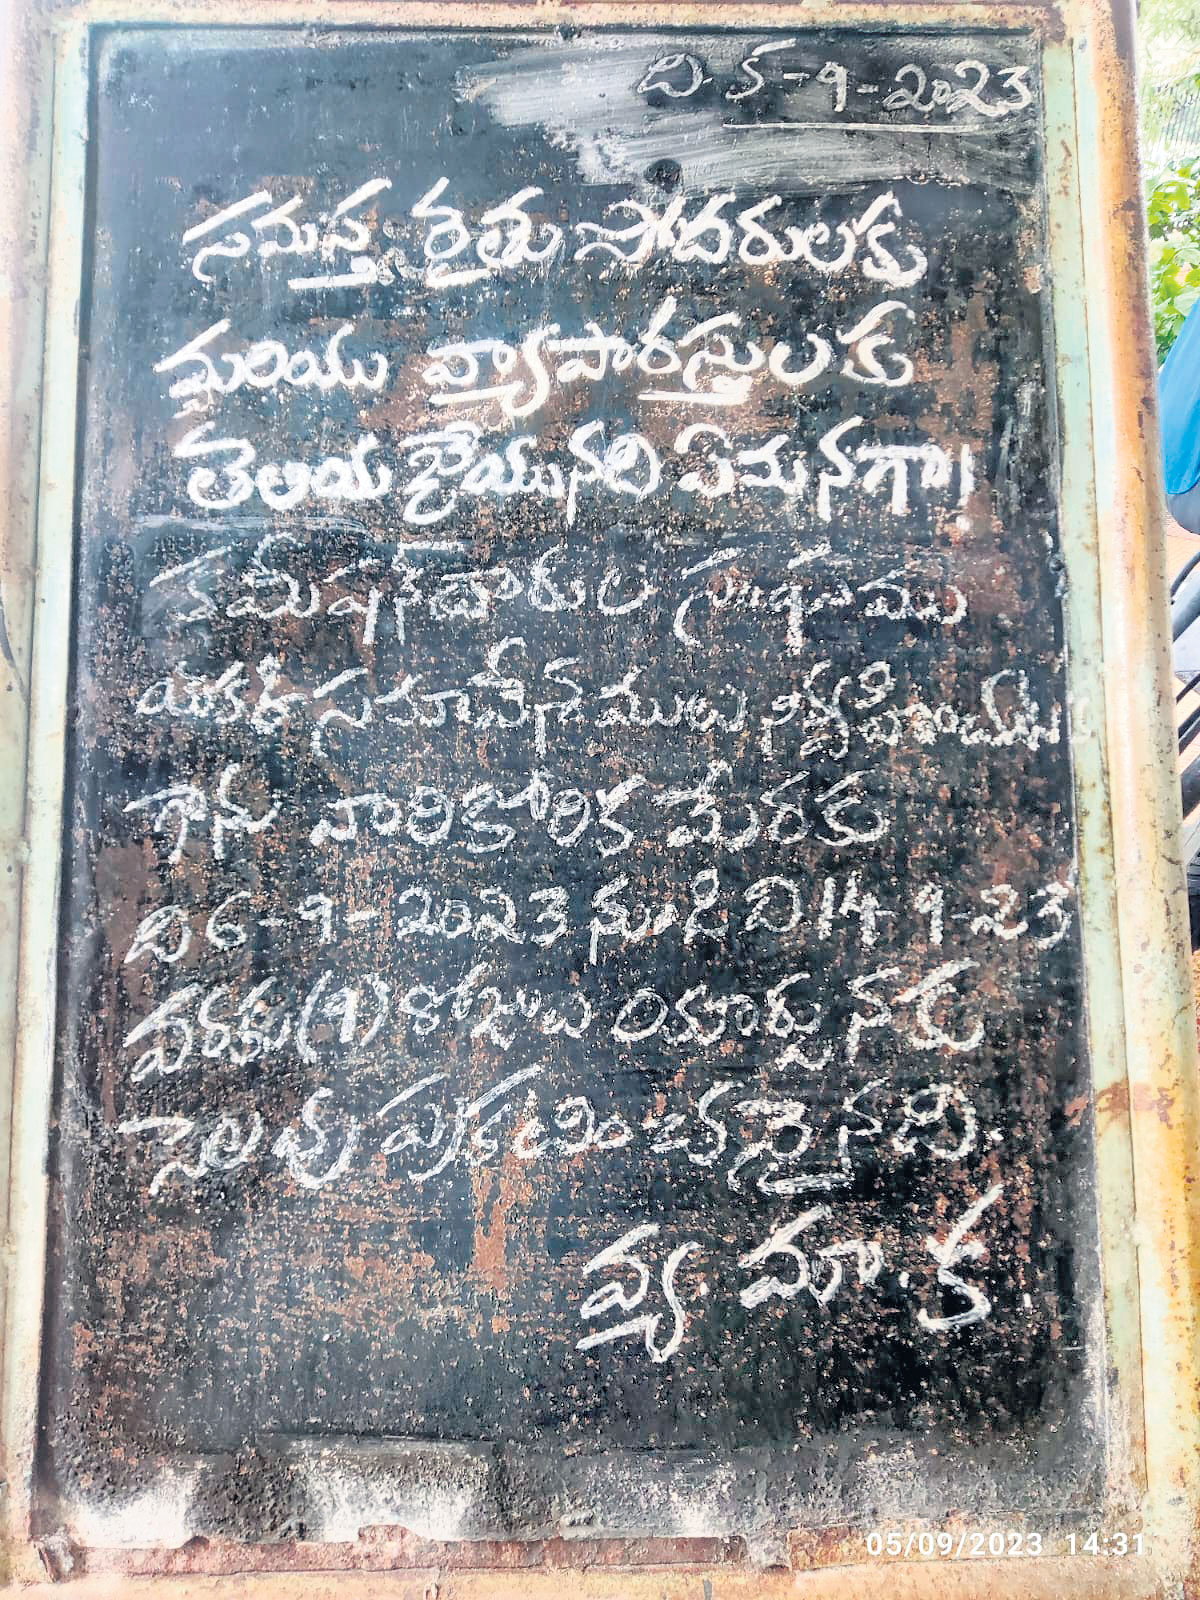 ది. 5-9-2023
సమస్త రైతు సోదరులకు
మరియు వ్యాపారస్తులకు
తెలియజేయునది ఏమనగా!
కమీషన్‌దారుల సంఘము
యొక్క సమావేశములు నిర్వహించు
గాను వారి కోరిక మేరకు
ది 6-9-2023 నుండి ది 14-9-23
వరకు (9) రోజులు యార్డు నకు
సెలవు ప్రకటించనైనది.
వ్య. మా. క.
05/09/2023 14:31